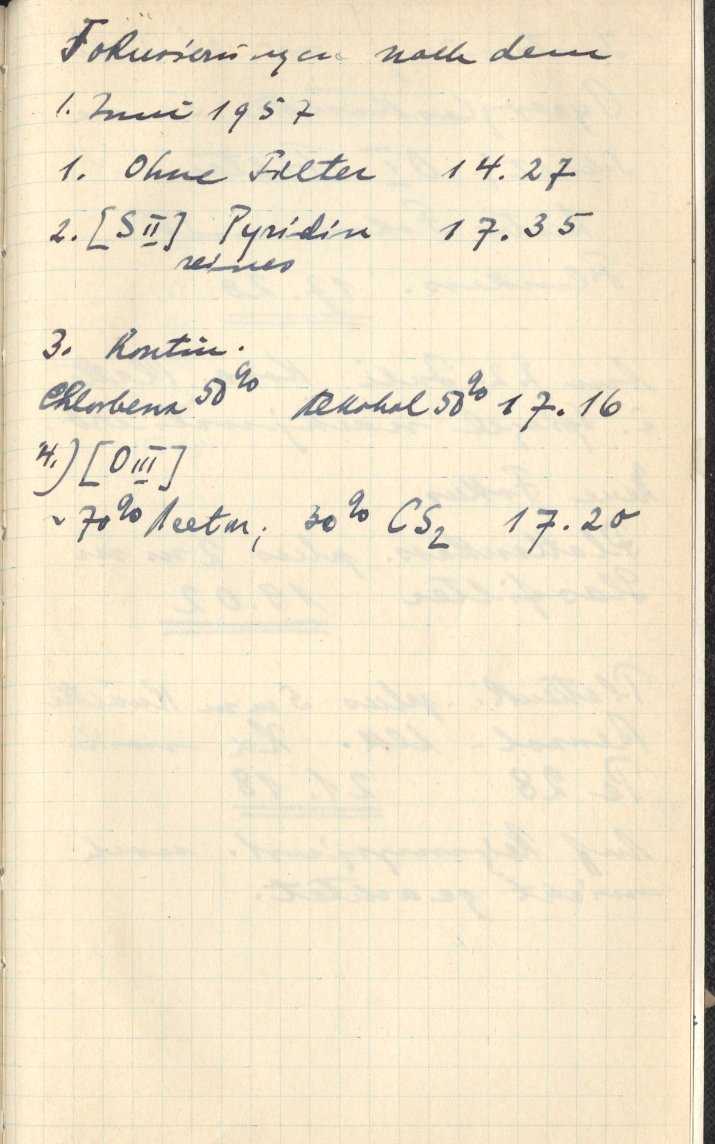 Fokussierungen nach dem
1. Juni 1957
1. Ohne Filter 14.27
2. [SII] Pyridin 17.35
reines
3. Kontin.
Chlorbenz 50% Alkohol 50% 17.16
4.) [OIII]
~ 70% Aceton, 30% CS2 17.20